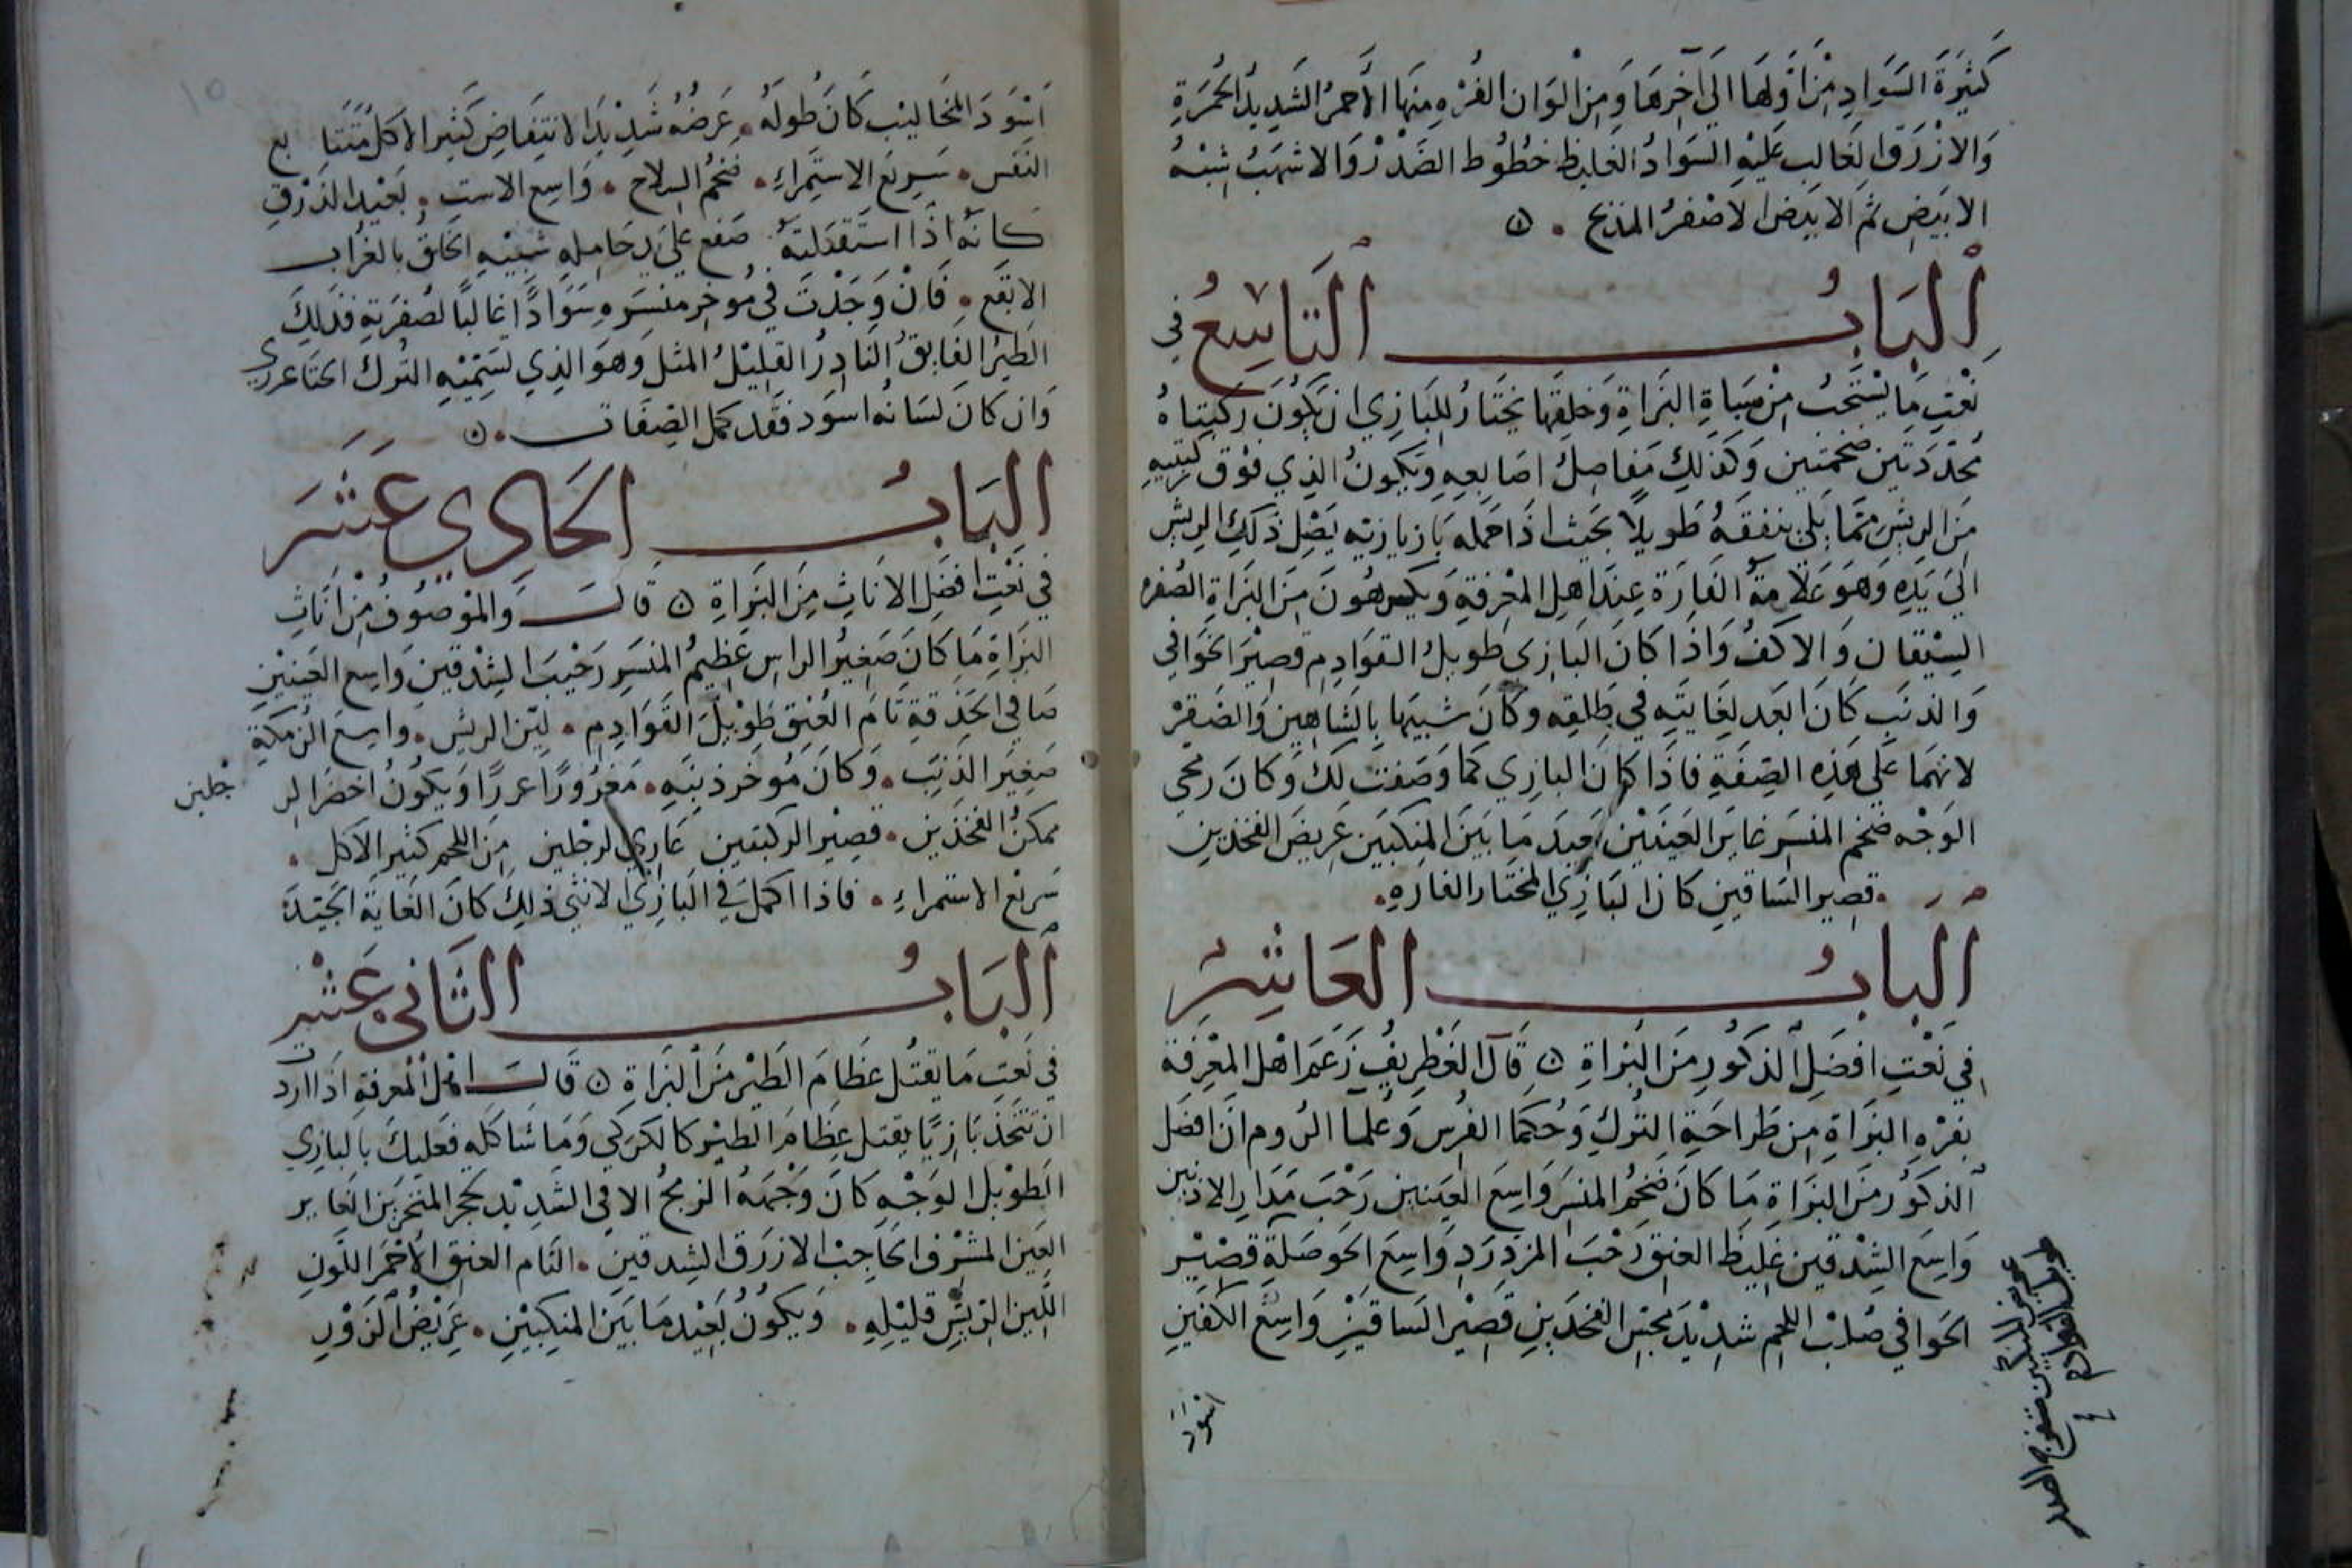 كَثِيرَةَ السَوَادِ مِنْ اَوَّلِهَا اِلَى آخِرِهَا وَمِنْ الوَان الفُرْهِ مِنهَا الأَحمرُ الشَدِيدُ الحُمرَةِ
وَالازْرَق الغَالِب عَلَيْهِ السَوَادُ الغَليظ خطُوُط الصَدْرْ وَالاشهَبُ شِبْهُ
الابيَضِ ثم الابيَض الاصْفرُ المذبح
اَلبَابُ التَاسِعُ في
نَعْتِ مَا يسْتَحَبُ مِنْ سِبَاةِ البَزاةِ وَخلِقَها يختَارُ للبَازِي ان يَكوُنَ رُكبتاهُ
مُحَدّدَتين ضخمَتين وَكَذَلِكَ مَفاصِلُ اصَابعِهِ وَيكونُ الذِي فوْق ركبتيهِ
مِنَ الرِيشِ مَمّا يَلي ينفقهُ طَويلاً بحَيث اذَا حَمَله بَازيَارته يَصْلِ ذَلِكَ الرِيش
اِلىَ يَدِهِ وَهوَ عَلامَةُ الفَارَة عِندَ اهلِ المعْرِفَةِ وَيكرهُونَ مِنَ البَزاةِ الصُفر
السِيْقان وَالاكفُ وَاذَا كَانَ البَازِي طَويلُ القوَادِمِ قصِيْرَ الخوَافي
وَالذنَبِ كَانَ ابَعد لغَايَتِه في طَلقِه وكانَ شبيَها بالشَاهِين وَالصَقرْ
لانهَما عَلَى هَذِه الصِفَةِ فاذَا كانَ البازِي كمَا وَصَفتُ لكَ وَكانَ رمحي
الوَجْه ضخم المنسَرِ غايرَ العَينَيْن بَعِيدَ مَا بَينَ المنكبَين عَرِيضَ الفخذين
قصِير السَاقين كان البَازِي المختَار الفارهِ
اَلبابُ العَاشِرُ
في نَعْتِ افضَلِ الذكوُرِ مِنَ البَزاةِ قَالَ الغَطْرِيفُ زَعَمَ اهْل المعْرِفَة
بفرْهِ البَزاةِ مِن طَراخَنةِ التُركِ وَحُكمَا الفُرس وَعُلما الرُوم انَ افضَل
الذكوُر مِنَ البزَاةِ مَا كانَ ضخمُ المنسَر وَاسِعَ العَينين رَحْبَ مَدَارِ الاذنين
وَاسِعَ الشِدْقَين غليظَ العنِق رَحْبَ المزدِرَد وَاسِعَ الحَوصَلَةِ قصِيْر
الخَوافي صُلبْ اللحم شدِيْد مجسِ الفَخذَين قصِيْر السَاقيَن وَاسِعَ الكفيَن
طويل القوادم
عريض المنكبين منفوخ الصدر
اسْوَد
اَسْوَدَ المخَاليْب كَانَ طُولهُ عَرضُهُ شَدِيْدَ الانتِفَاضِ كثِير الاكل متتا بع
النَفَس سَرِيعَ الاستِمراءِ ضخمُ السِلاح وَاسِع الاستِ بَعيْد الذرْقِ
كانهُ اذَا استَقبَلتهُ صَقع عَلى يد حَامِلِه شبيْهِ الخَلقِ بالغُراب
الابقَع فَانْ وَجَدْتَ في مُوخر منسَرِهِ سَوَاداً غالباً لصُفرَتِهِ فذَلِكَ
الطيرُ الفايقُ النَادِرُ القليْلُ المثل وَهوَ الذِي تسَمّيْهِ التُرك
وَان كانَ لسَانُه اسوَد فقَد كمل الصِفَات
البَابُ الحَادِي عَشَر
في نَعْتِ افضَلِ الانَاثِ مِنَ البَزاةِ قَالَ وَالموْصوُفُ مِنْ انَاثِ
البَزاةِ مَا كانَ صَغِيْرُ الراسِ عَظِيمُ المنسَر رَحْيبَ الشِدقينِ وَاسِع العَينيْنِ
صَافي الحَدَقةِ تَامَ العُنِق طوْيلَ القَوَادِم ليّن الريش واسِعَ الزمكةِ
صَغِيَر الذنَبِ وَكانَ مُوخر ذنبَهِ مَغرُورًا غررًا وَيكونُ اخضَر الر جلين
ممكنُ الفخذَين قصِيْر الركبَتين عَارِي الرِجلين مِنَ اللحم كثير الاكل
سَرِيْعَ الاستمراءِ فاذا اكملَ في البَازِي الانثى ذلِكَ كانَ الغَاية الجَيّدَة
اَلبَابُ الثَاني عَشْر
في نَعتِ مَا يقتُل عظَامَ الطَيْر مِنَ البَزاةِ قَالَ اهْلُ المعرفةِ اذا اردت
ان تتَخذ بَازِيًا يقتل عِظامَ الطيْر كالكركي وَمَا شَاكله فعَليكَ بالبازي
الطَوْيل الوَجْهِ كَانَ وَجْههُ الرمحُ الافي الشَدِيْد حجر المنخَرين الغَاير
العَين المشْرِف الحَاجِبْ الازرَق الشِدقين التَام العنِق الأحمَرَ اللَونِ
اللَّين الرَيشِ قليْلِهِ وَيكونُ بَعيْد مَا بَيَن المنِكبيْنِ عَريْضُ الزَوْرِ